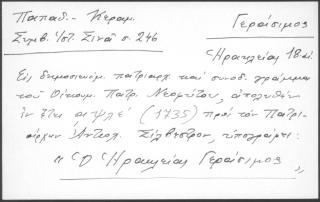 Παπαδ.- Κεραμ.
Γεράσιμος
Συμβ. Ἱστ. Σινᾶ σ. 246
Ἡρακλείας 18 αἰ.
Εἰς δημοσιευόμ. πατριαρχ. καὶ συνοδ. γράμμα
τοῦ Οἰκουμ. Πατρ. Νεοφύτου, ἀπολυθὲν
ἐν ἔτει αψλέ (1735) πρὸς τὸν Πατρι-
άρχην Ἀντιοχ. Σίλβεστρον, ὑπογράφει:
"Ὁ Ἡρακλείας Γεράσιμος"